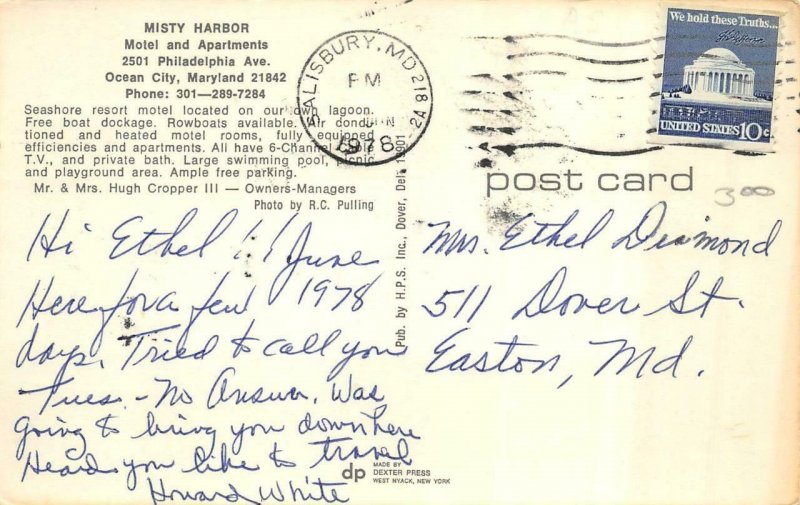 MISTY HARBOR
Motel and Apartments
2501 Philadelphia Ave.
Ocean City, Maryland 21842
Phone: 301—289-7284
Seashore resort motel located on our own lagoon.
Free boat dockage. Rowboats available. Air condi-
tioned and heated motel rooms, fully equipped
efficiencies and apartments. All have 6-Channel
T.V., and private bath. Large swimming pool, picnic
and playground area. Ample free parking.
Mr. & Mrs. Hugh Cropper III — Owners-Managers
Photo by R.C. Pulling
Hi Ethel !! June
Here for a few 1978
days. Tried to call you
Tues. - No Answer. Was
going to bring you down here
Heard you like to travel
Howard White
Pub. by H.P.S. Inc., Dover, Del. 19901
dp MADE BY
DEXTER PRESS
WEST NYACK, NEW YORK
SALISBURY, MD 218
PM
JUN
1978
2A
We hold these Truths...
UNITED STATES 10c
post card
3.00
Mrs. Ethel Diamond
511 Dover St.
Easton, Md.